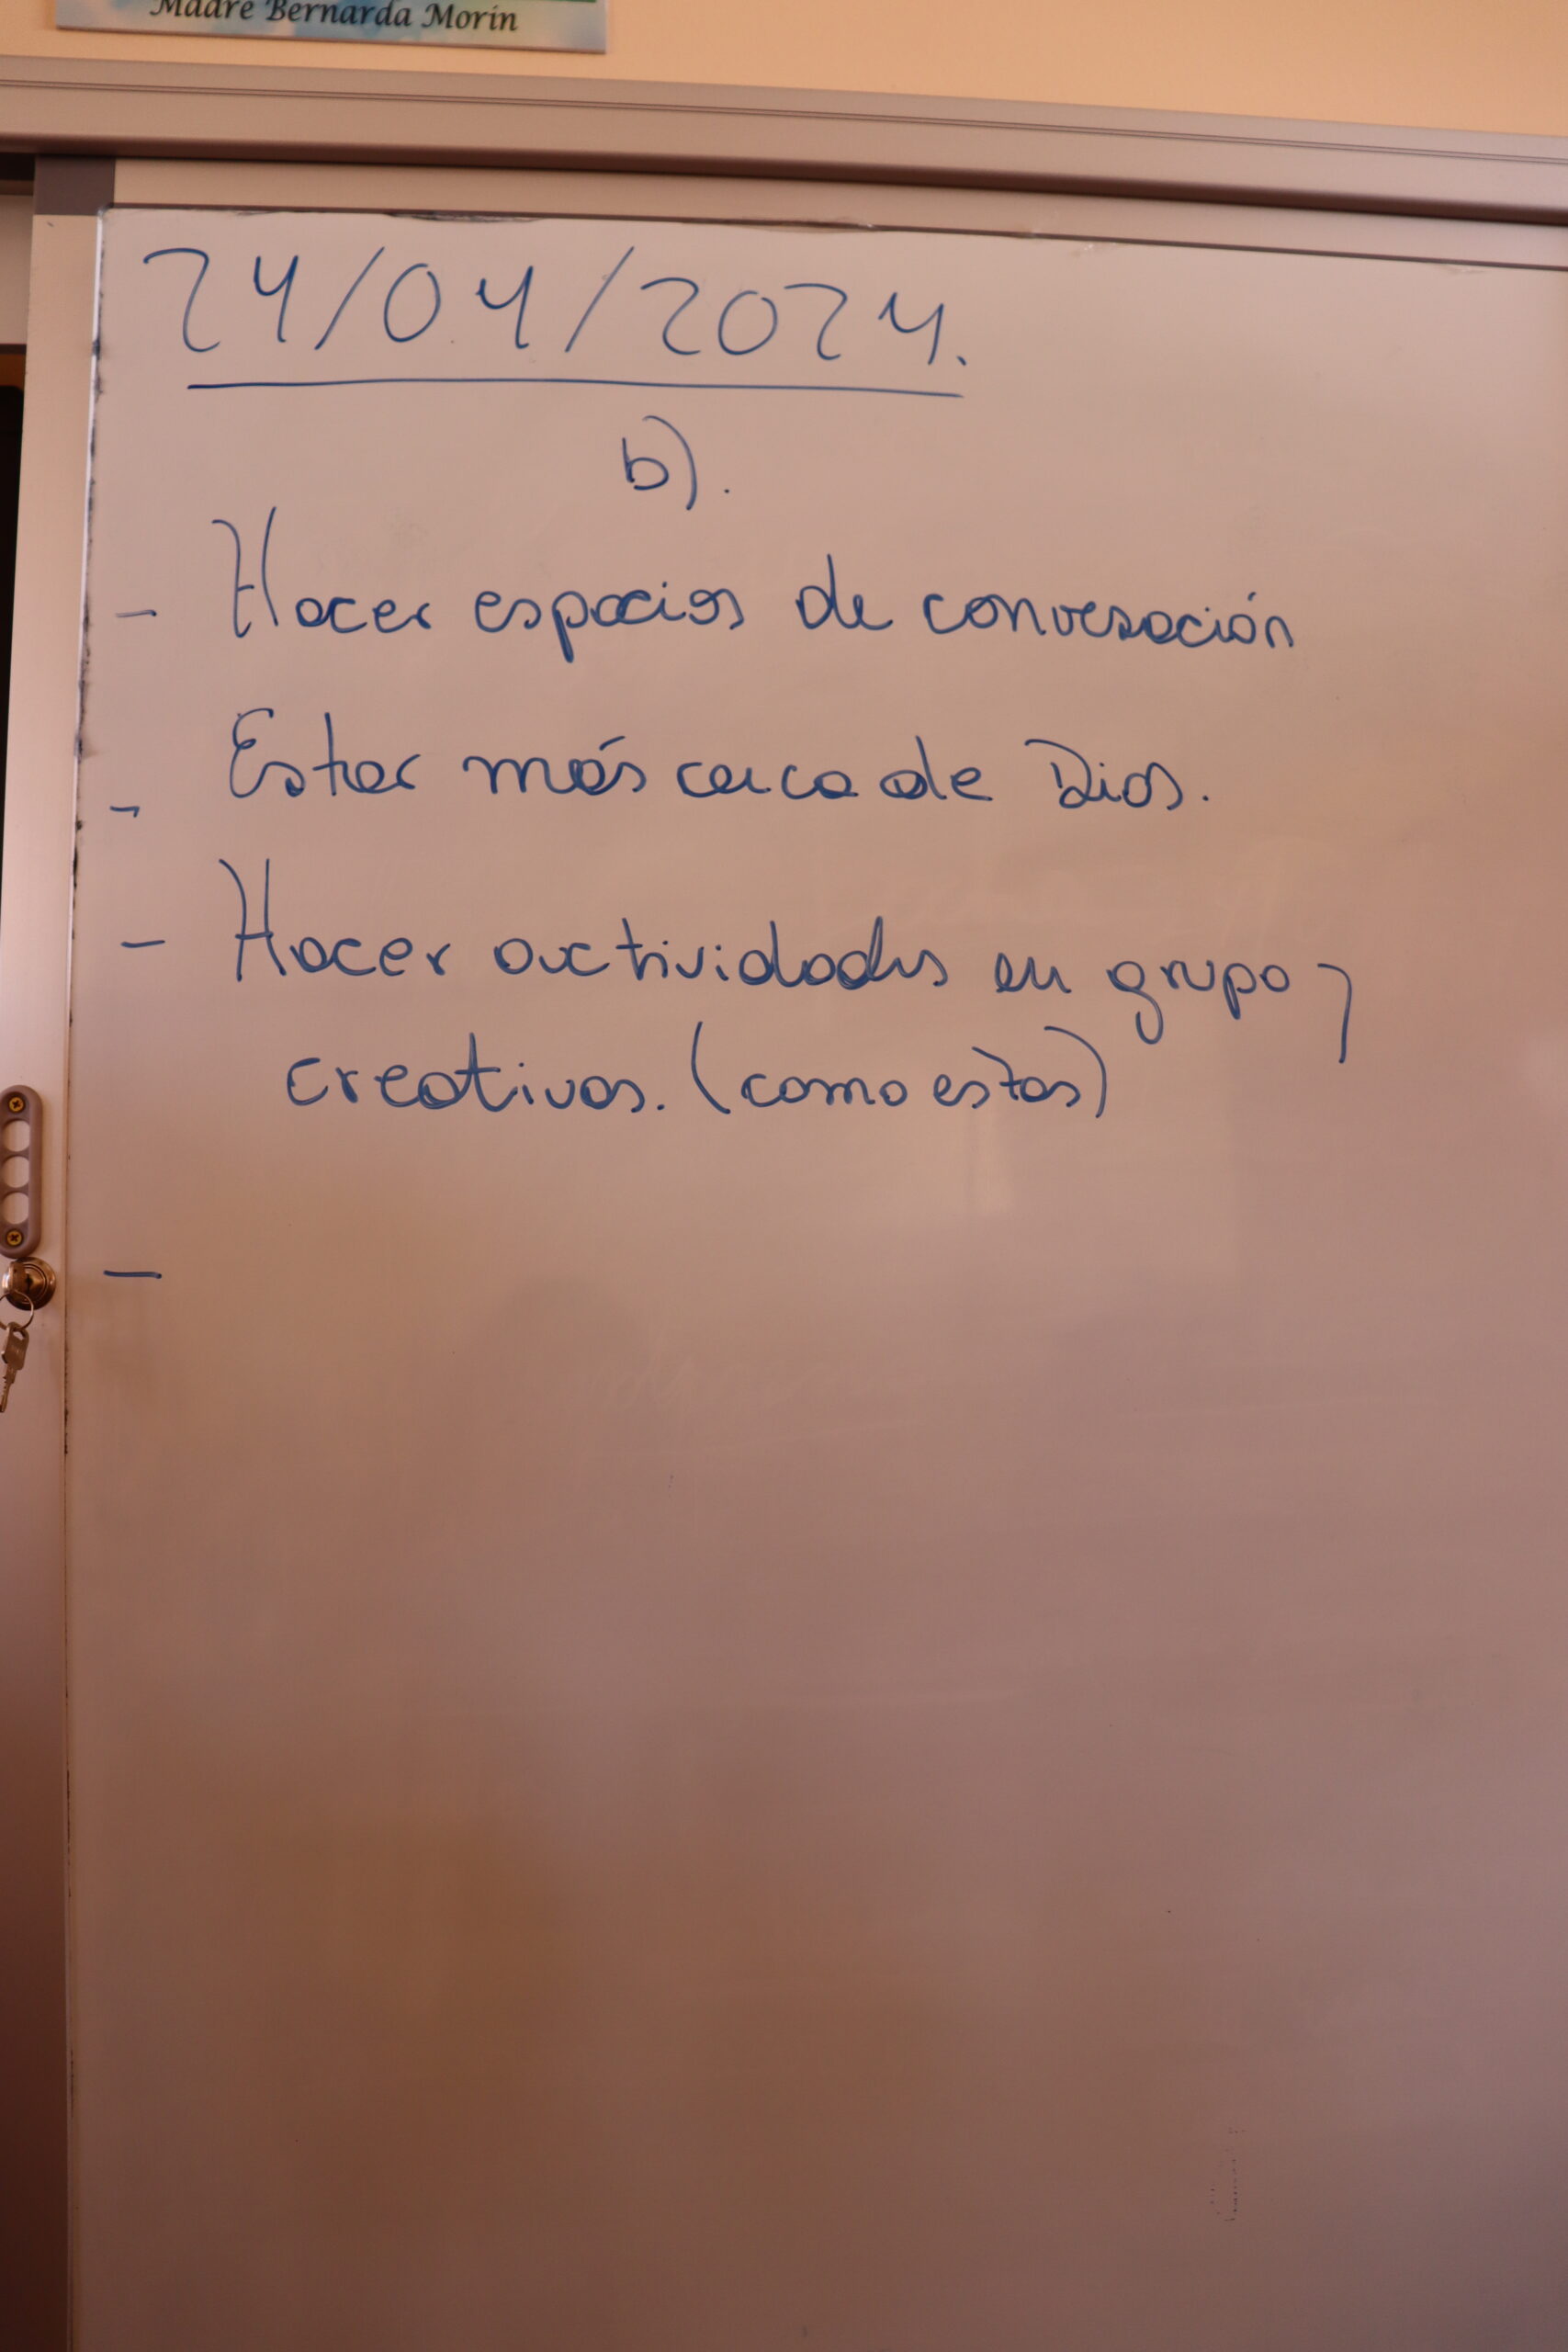 Madre Bernarda Morin
24/04/2024.
b).
- Hacer espacios de conversación
- Estar más cerca de Dios.
- Hacer actividades en grupo y
creativas. (como estas)
-